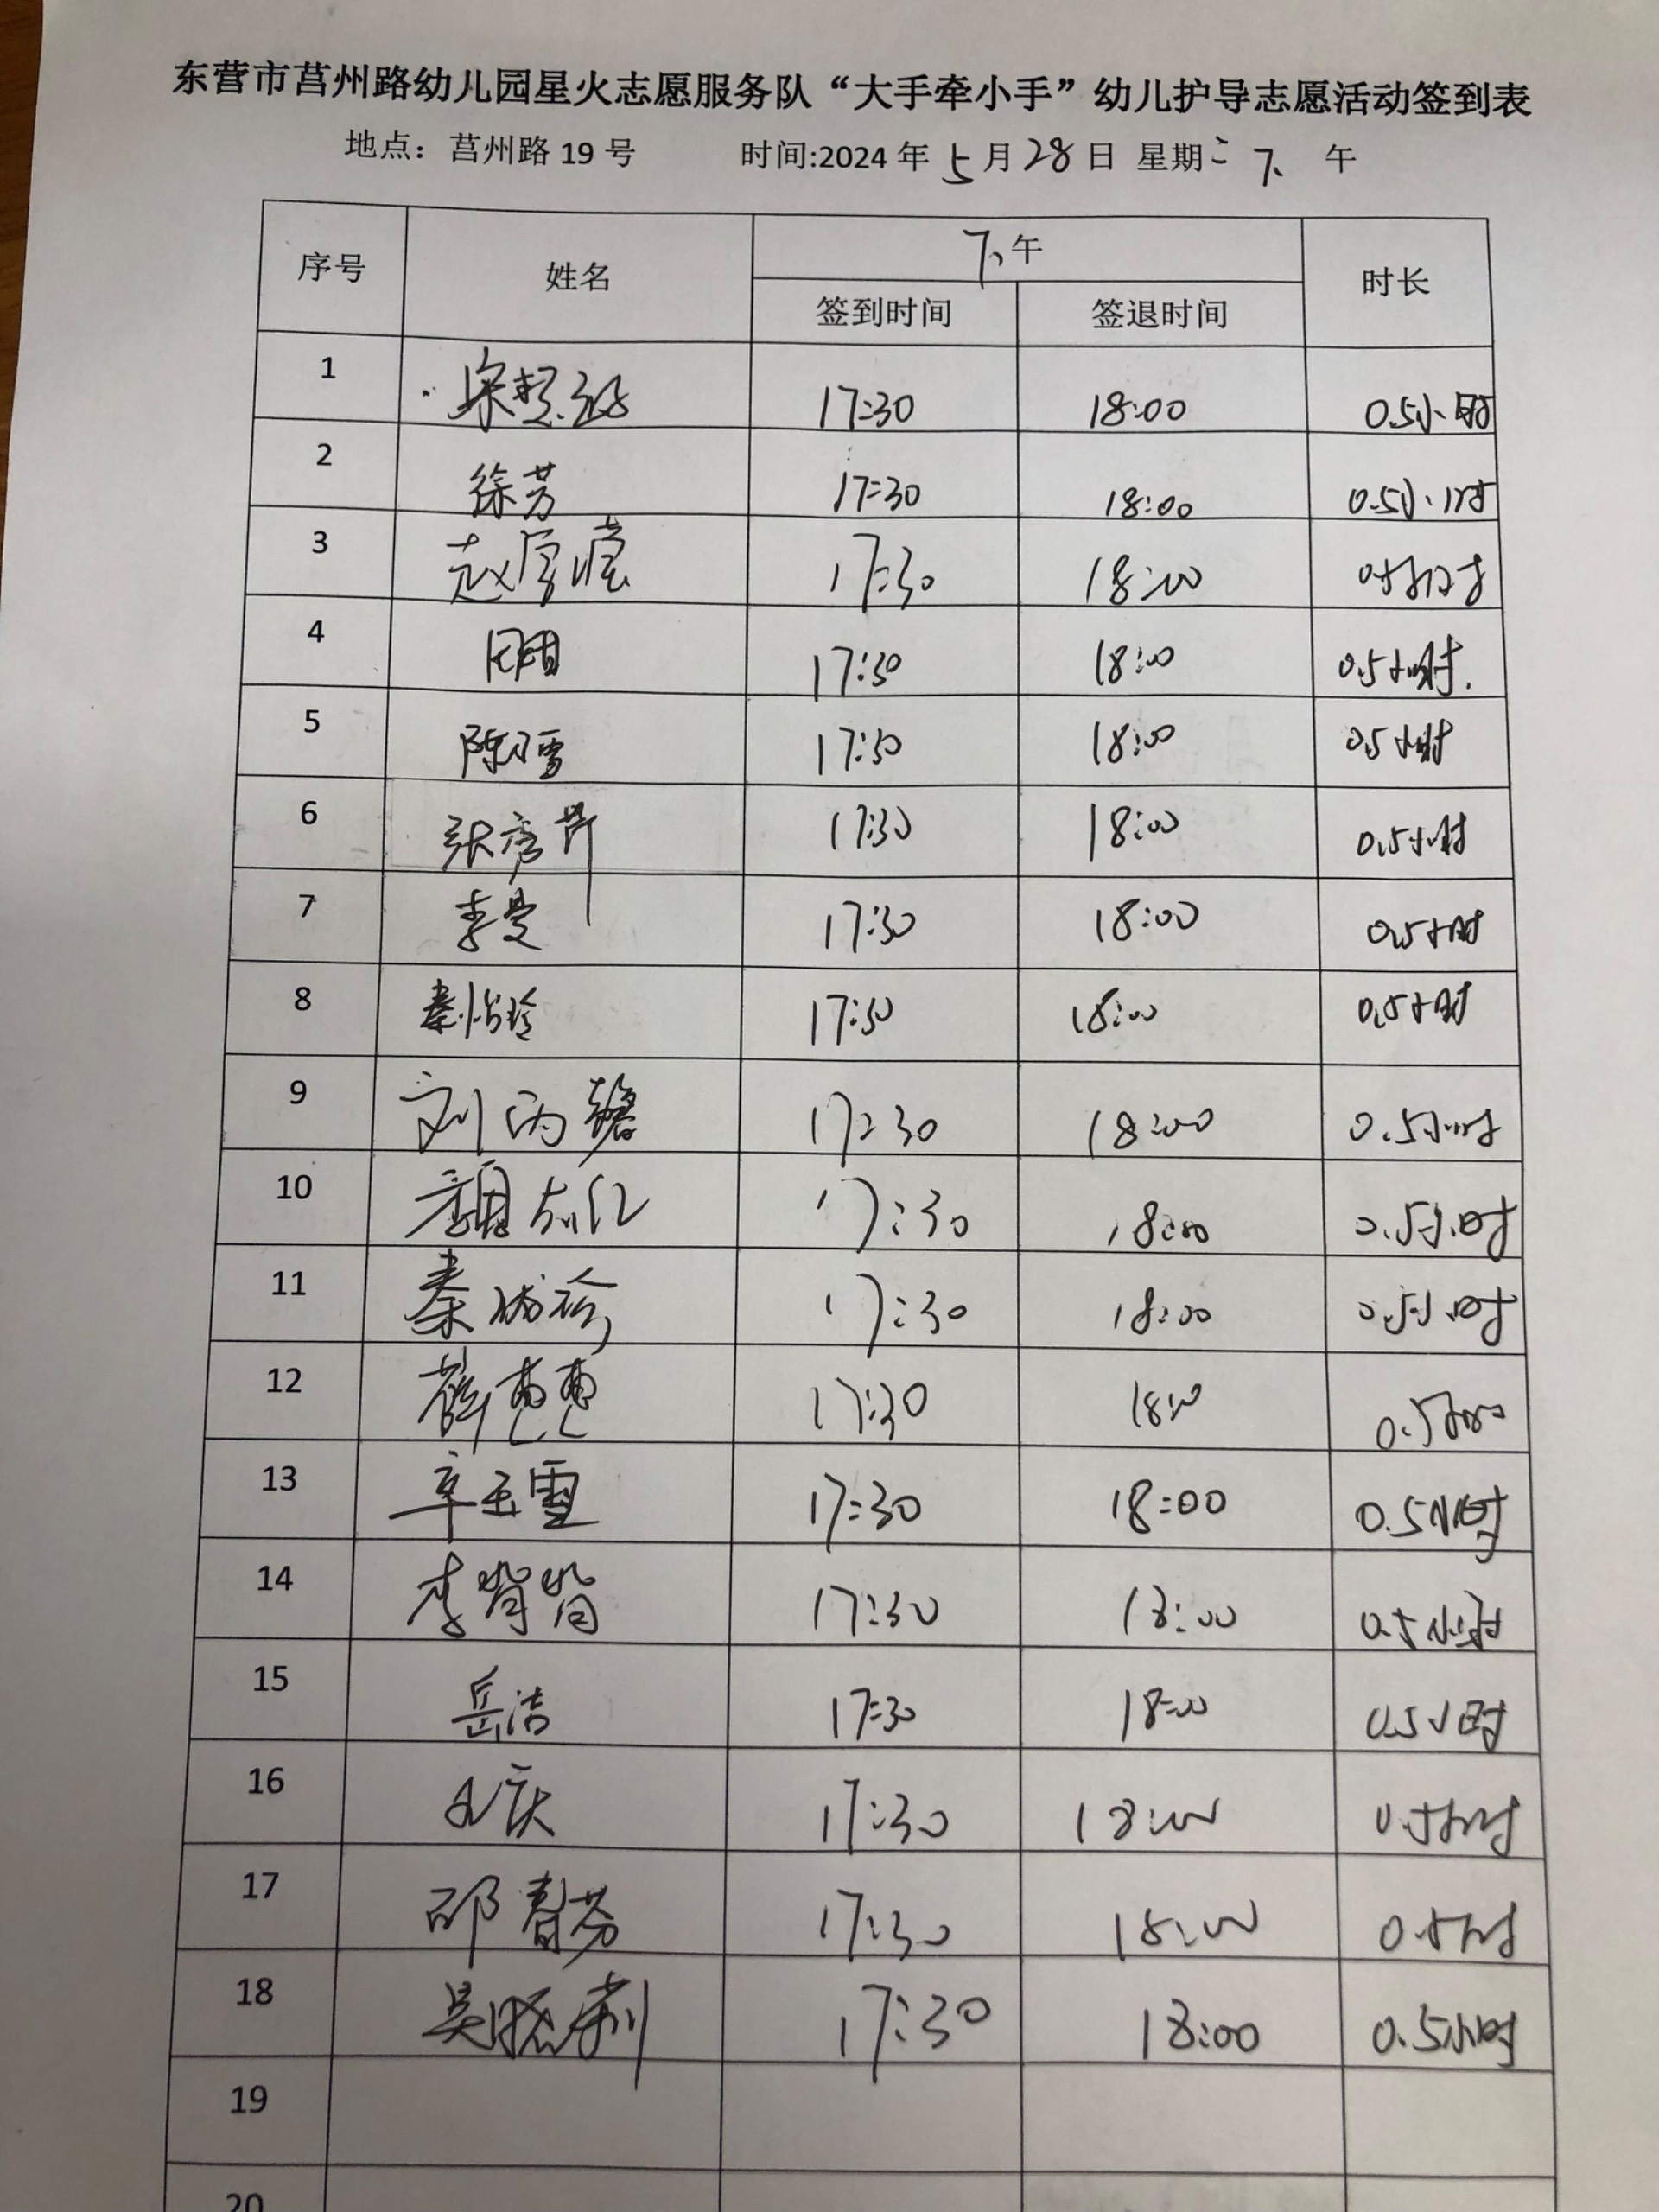 东营市莒州路幼儿园星火志愿服务队“大手牵小手”幼儿护导志愿活动签到表
地点：莒州路 19 号 时间:2024 年 5 月 28 日 星期二 下 午
序号 姓名 下午 时长
签到时间 签退时间
1 17:30 18:00 0.5小时
2 徐芳 17:30 18:00 0.5小时
3 17:30 18:00 0.5小时
4 17:30 18:00 0.5小时.
5 陈小雪 17:30 18:00 0.5小时
6 张秀芹 17:30 18:00 0.5小时
7 李曼 17:30 18:00 0.5小时
8 秦怡玲 17:30 18:00 0.5小时
9 17:30 18:00 0.5小时
10 17:30 18:00 0.5小时
11 17:30 18:00 0.5小时
12 薛惠惠 17:30 18:00 0.5小时
13 辛玉雪 17:30 18:00 0.5小时
14 李背背 17:30 18:00 0.5小时
15 岳洁 17:30 18:00 0.5小时
16 17:30 18:00 0.5小时
17 邵春芬 17:30 18:00 0.5小时
18 17:30 18:00 0.5小时
19
20